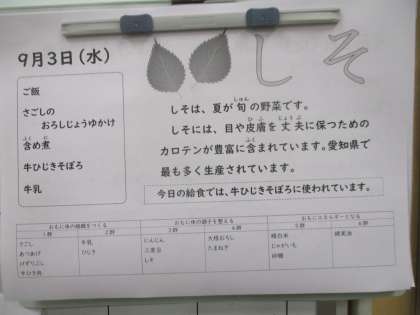 9月3日(水)
しそ
ご飯
さごしの
おろしじょうゆかけ
含め煮
ふく に
牛ひじきそぼろ
牛乳
しゅん
しそは、夏が旬の野菜です。
ひふ じょうぶ
しそには、目や皮膚を丈夫に保つための
ふく
カロテンが豊富に含まれています。愛知県で
最も多く生産されています。
今日の給食では、牛ひじきそぼろに使われています。
おもに体の組織をつくる おもに体の調子を整える おもにエネルギーとなる
1群 2群 3群 4群 5群 6群
さごし 牛乳 にんじん 大根おろし 精白米
あつあげ ひじき 三度豆 たまねぎ じゃがいも
けずりぶし しそ 砂糖
牛ひき肉